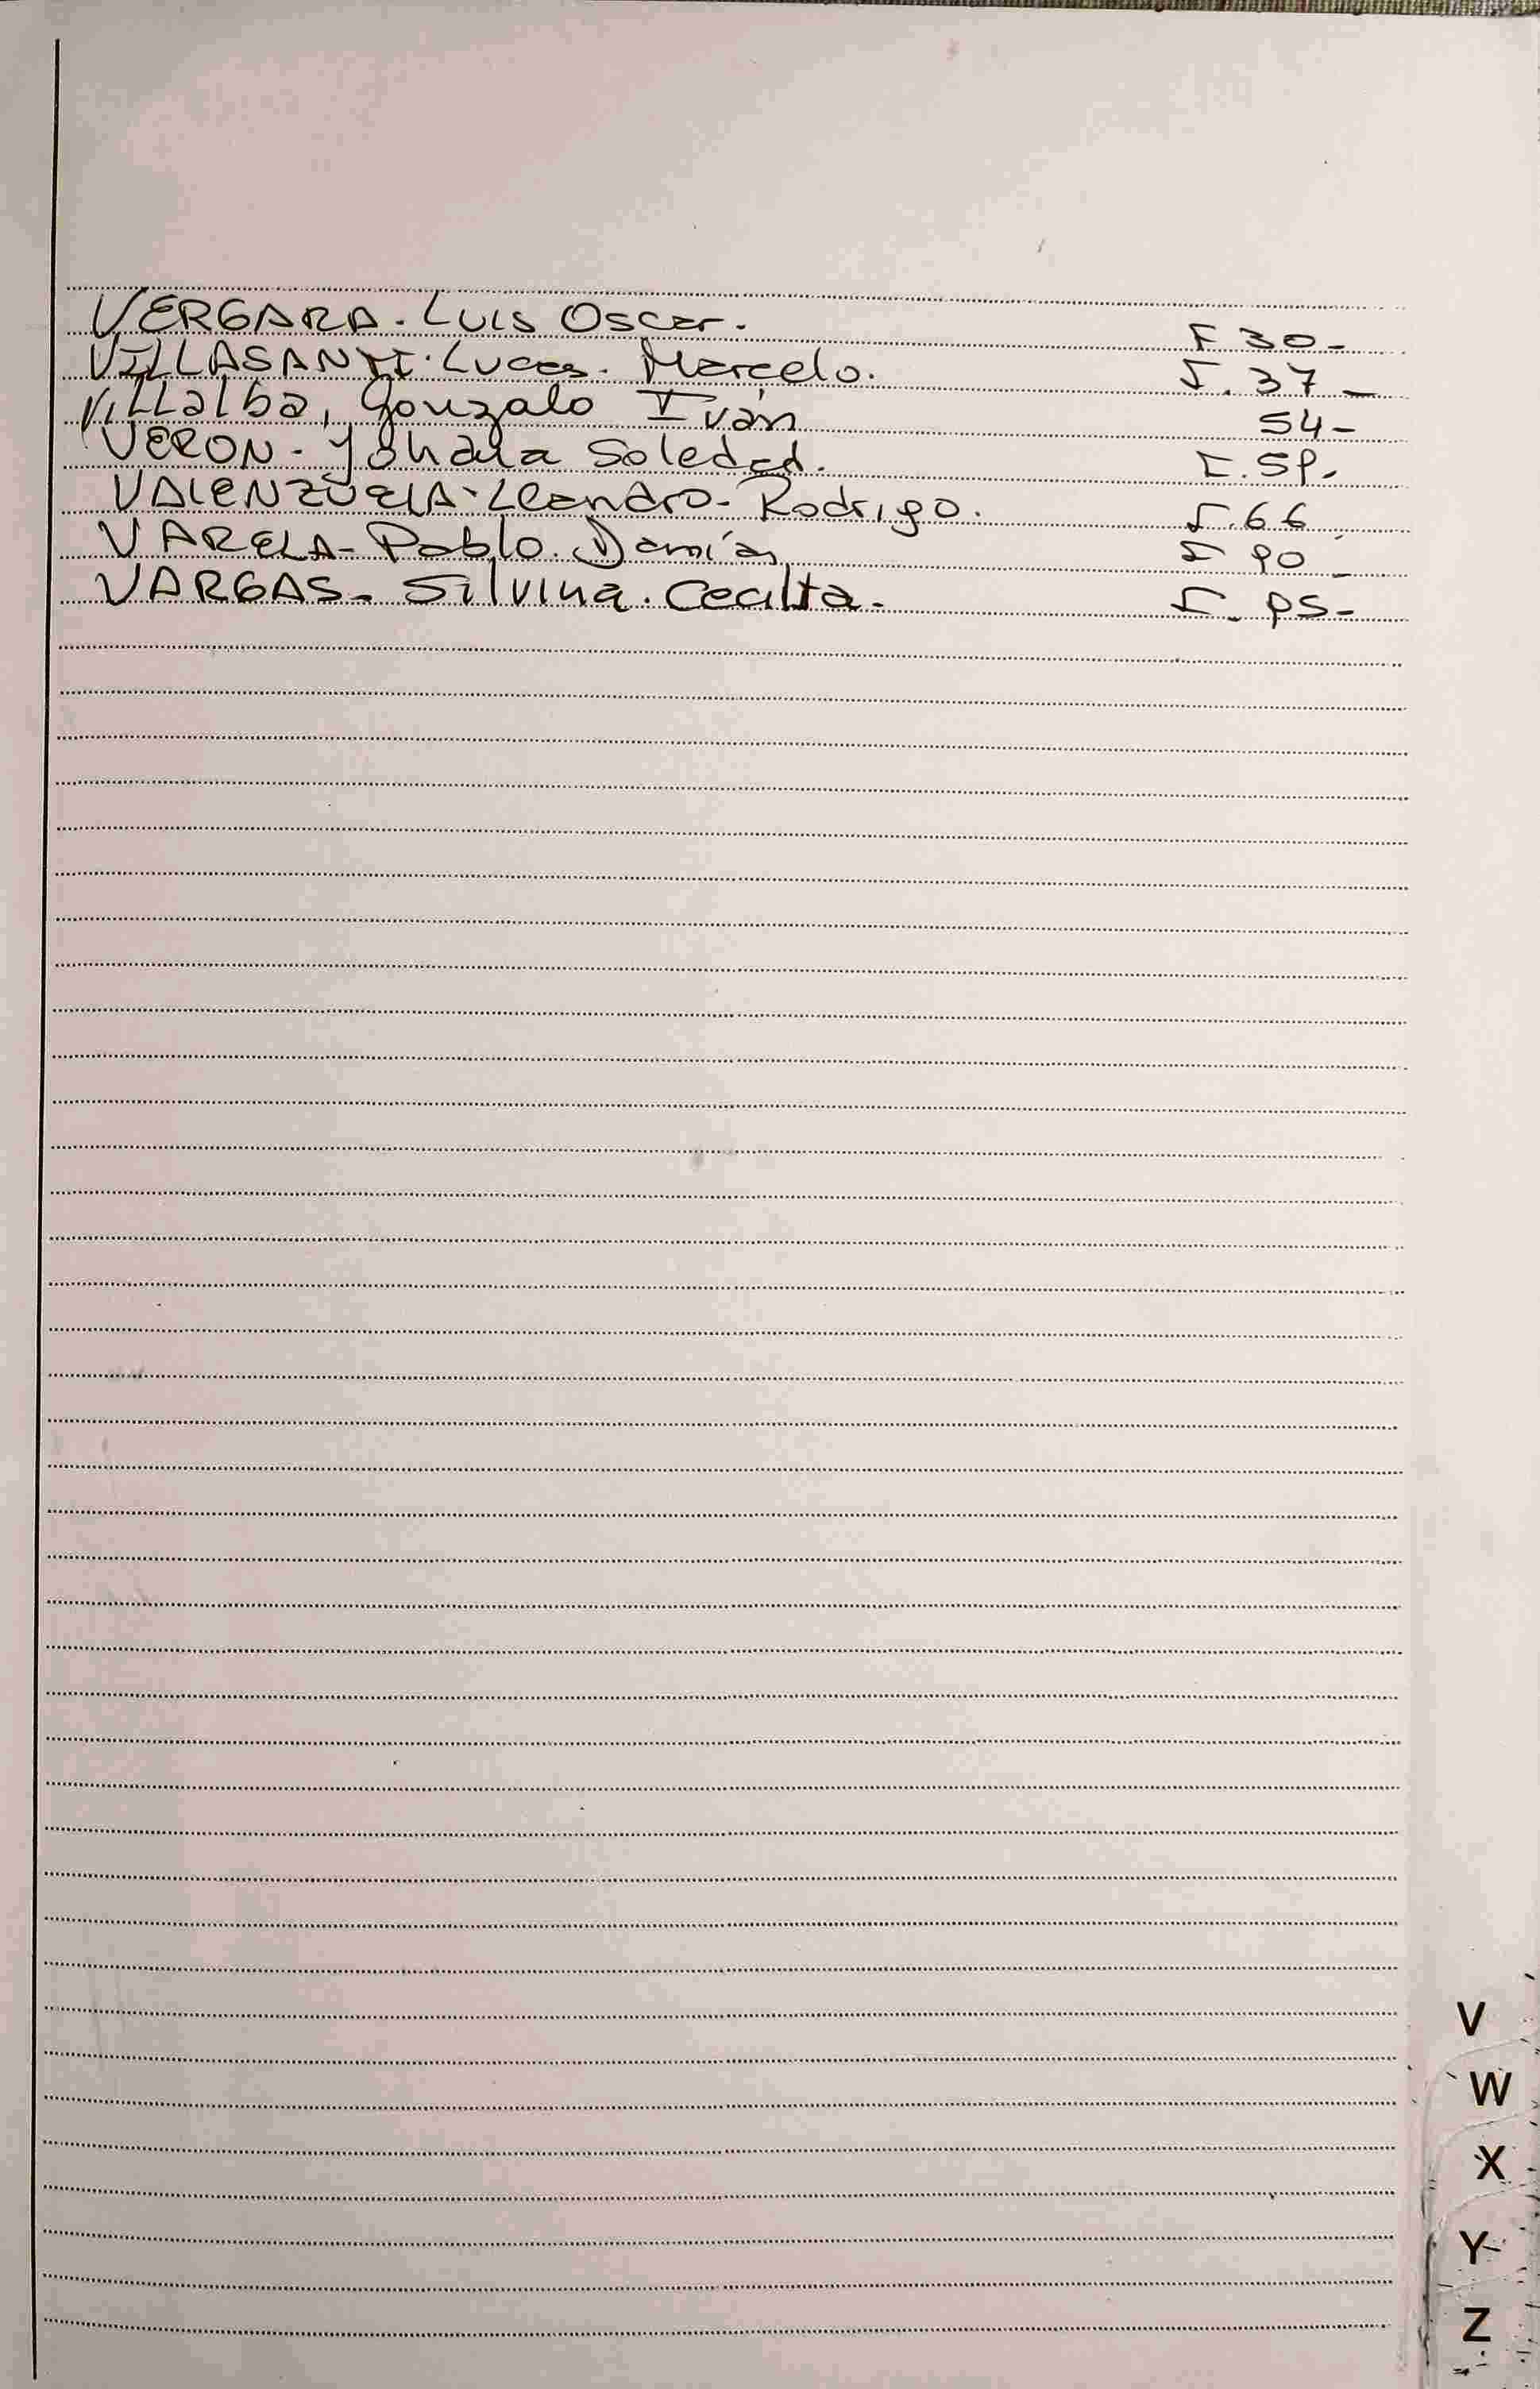 VERGARA. Luis Oscar. F 30-
VILLASANTI. Lucas. Marcelo. F. 37-
Villalba, Gonzalo Iván 54-
VERON - Yohana Soledad. F. 59.
VALENZUELA - Leandro - Rodrigo. F. 66
VARELA - Pablo. Damián F 90-
VARGAS - Silvina. Cecilia. F. 95-
V
W
X
Y
Z